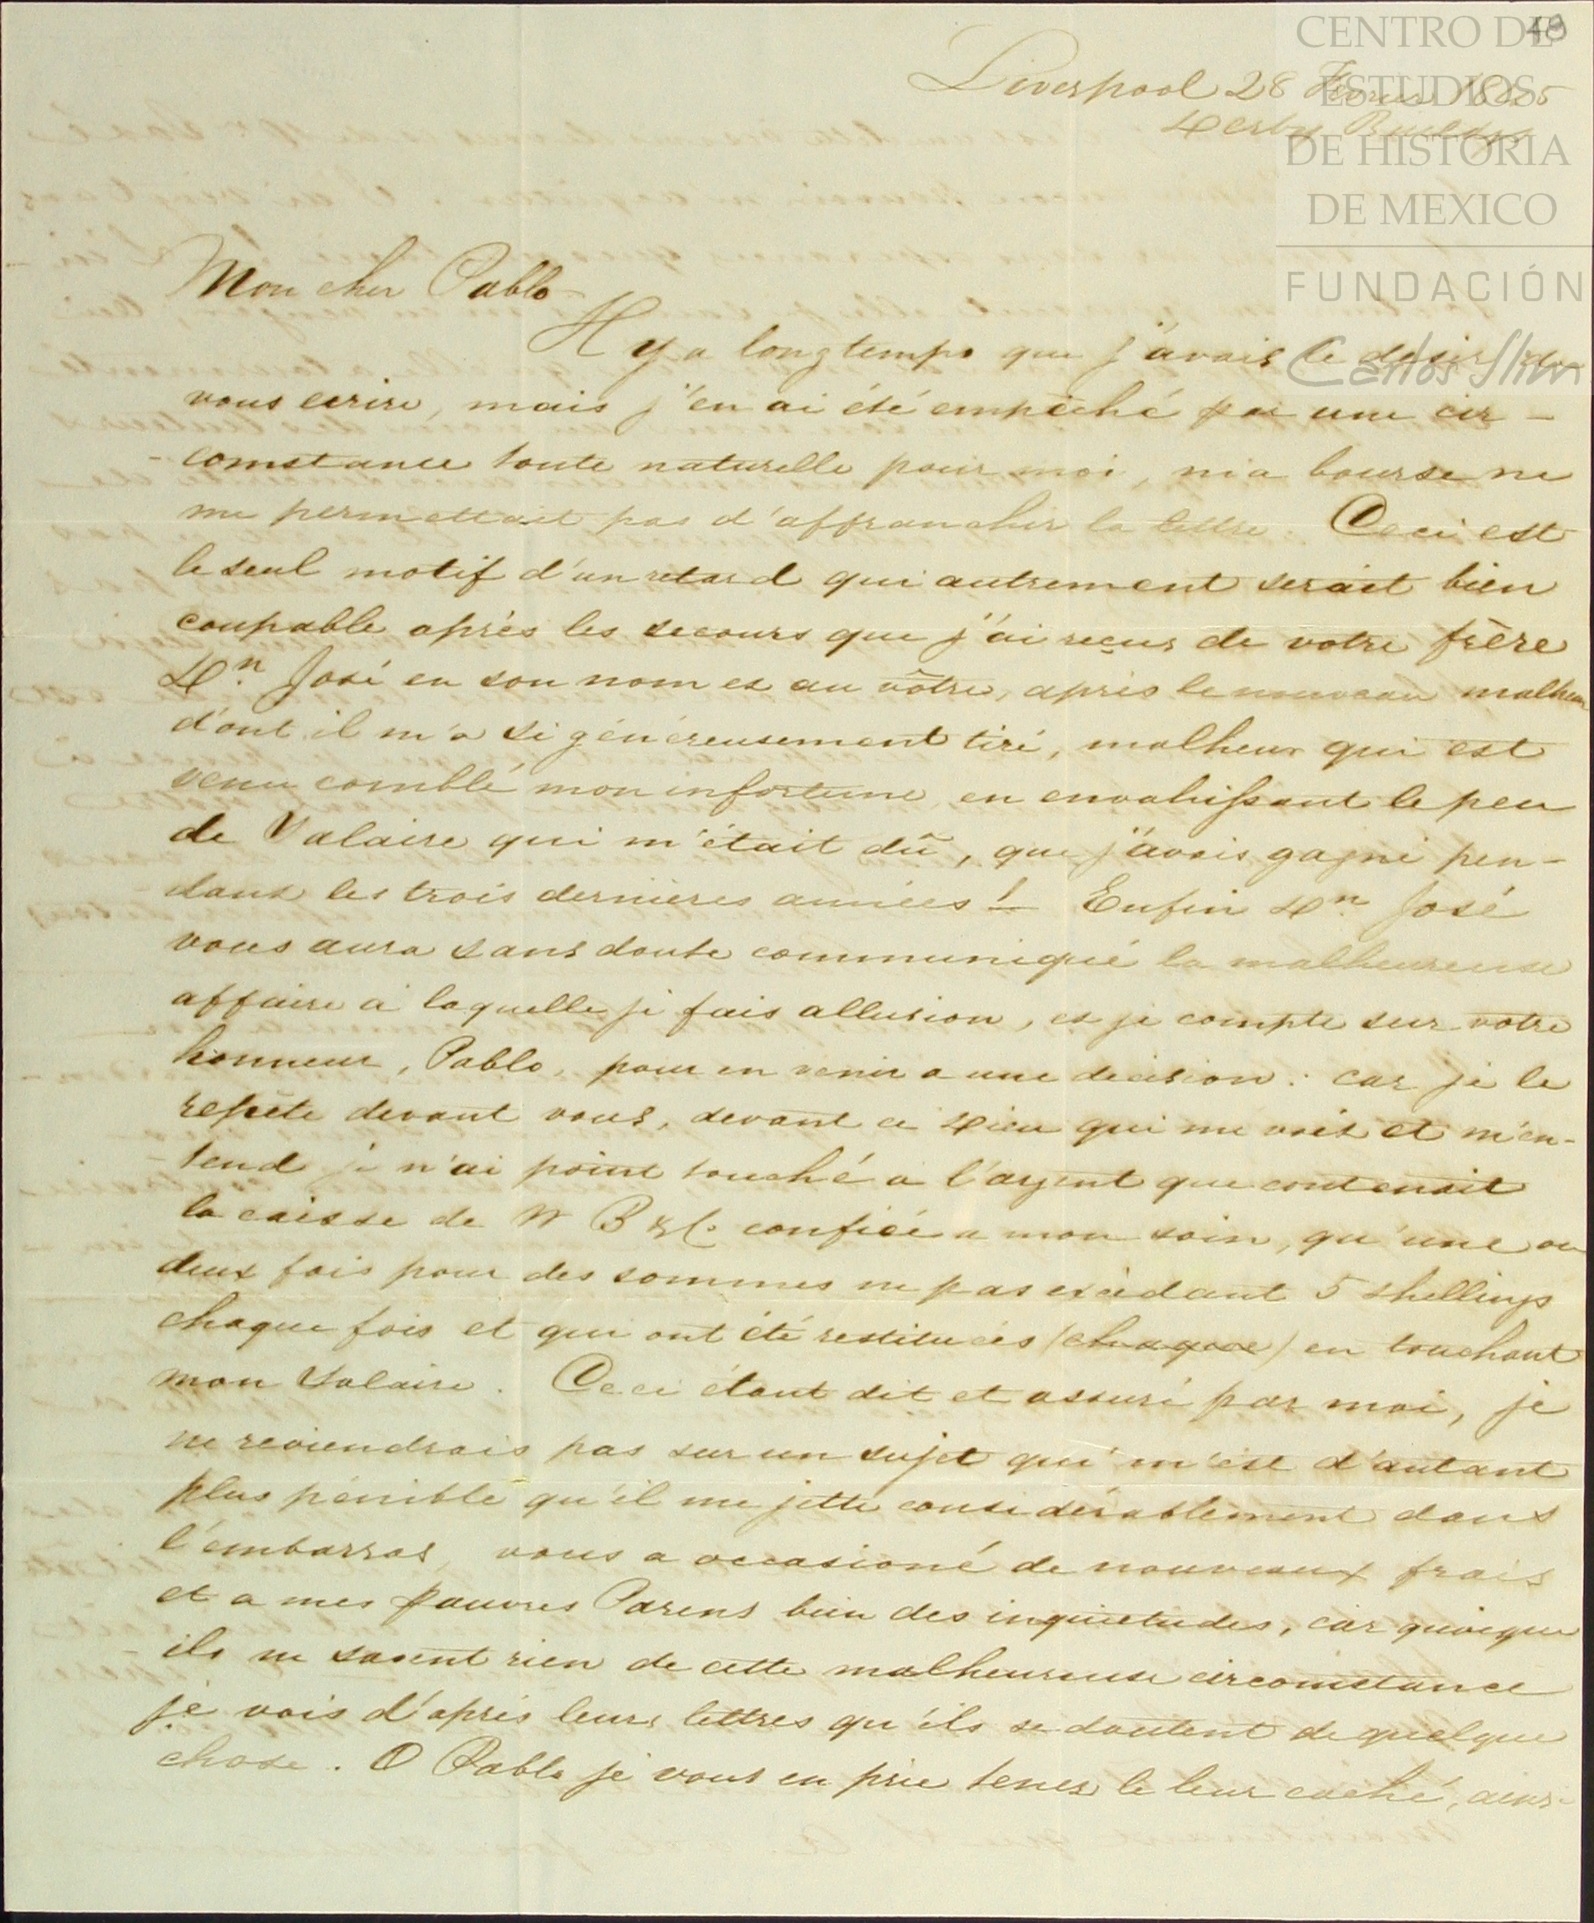 48
CENTRO DE
ESTUDIOS
DE HISTORIA
DE MEXICO
FUNDACIÓN
Carlos Slim
Liverpool 28
Derby Buildgs
Mon cher Pablo
Il y a longtemps que j'avais le desir de
vous ecrire, mais j'en ai été empêché par une cir-
-comstance toute naturelle pour moi, ma bourse ne
me permettait pas d'affranchir la lettre. Ceci est
le seul motif d'un retard qui autrement serait bien
coupable après les secours que j'ai reçus de votre frère
Dn. José en son nom et au vôtre, après le nouveau malheur
d'ont il m'a si généreusement tiré, malheur qui est
venu comblé mon infortune en envahissant le peu
de Salaire qui m'était dû, que j'avais gagné pen-
dant les trois dernières années! Enfin Dn. José
vous aura sans doute communiqué la malheureuse
affaire à laquelle je fais allusion, et je compte sur votre
honneur, Pablo, pour en venir a une decision: car je le
repète devant vous, devant ce Dieu qui me voit et m'en-
-tend je n'ai point touché a l'argent que contenait
la caisse de W B & C. confiée a mon soin, qu'une ou
deux fois pour des sommes ne pas excédant 5 shellings
chaque fois et qui ont été restituées (chaque) en touchant
mon Salaire. Ceci étant dit et assuré par moi, je
ne reviendrais pas sur un sujet qui m'est d'autant
plus pénible qu'il me jette considérablement dans
l'embarras, vous a occasioné de nouveaux frais
et a mes pauvres Parens bien des inquietudes, car quoique
ils ne savent rien de cette malheureuse circomstance
je vois d'après leurs lettres qu'ils se doutent de quelque
chose. O Pablo je vous en prie tenez le leur caché, ainsi